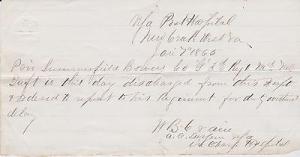 U.S.A. Post Hospital
New Creek West Va
Jan 7th 1865
Priv. Summerfield Bowers Co F 1st Regt Md
is this day discharged from this Hospt
& ordered to report to his Regiment for duty without
delay
W. B. Crain
a. a. Surgeon U.S.A.
in Charge Hospital